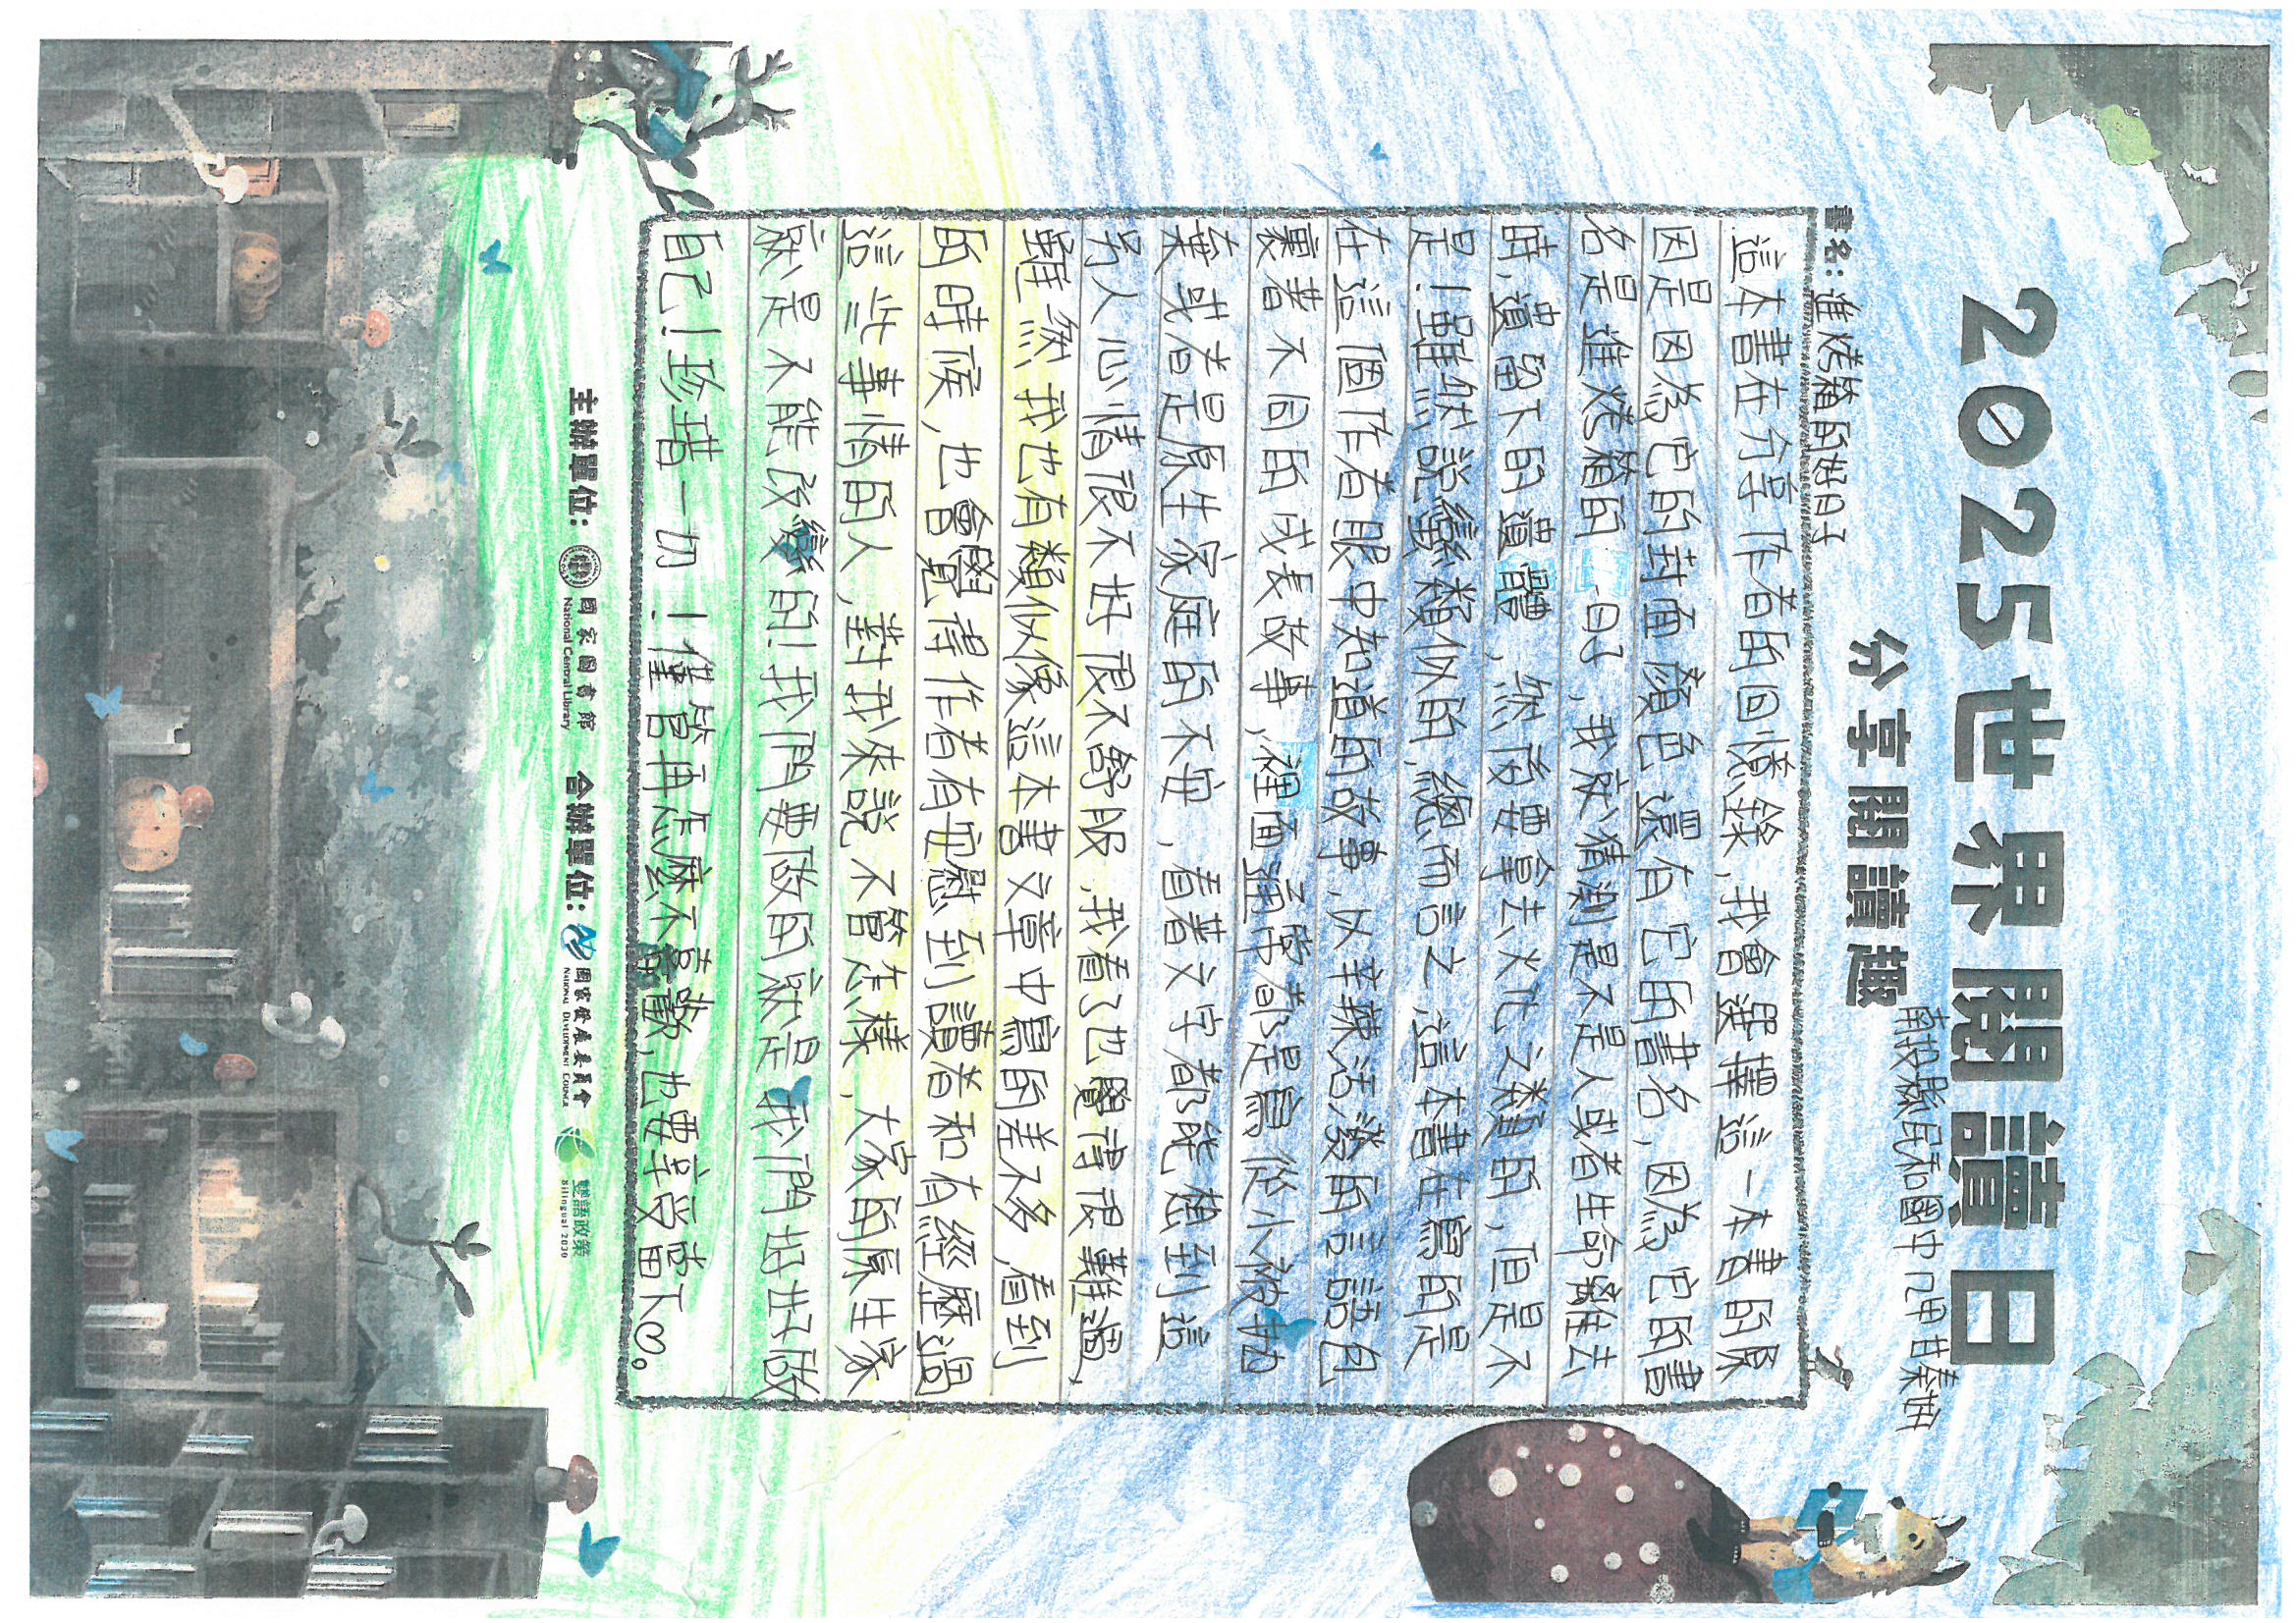 2025世界閱讀日
分享閱讀趣
南投縣民和國中 八甲 甘秦
書名：進烤箱的好日子
這本書在分享作者的回憶錄，我會選擇這一本書的原
因是因為它的封面顏色還有它的書名，因為它的書
名是進烤箱的 一日子，我就猜測是不是人或者生命離去
時，遺留下的遺體，然而要拿去火化之類的，但是不
是！雖然說蠻類似的，總而言之，這本書在寫的是
在這個作者眼中知道的故事，以辛辣活潑的言語包
裹著不同的成長故事，裡面通常都是寫從小被拋
棄或者是原生家庭的不安，看著文字都能想到這
另人心情很不好很不舒服，我看了也覺得很難過，
雖然我也有類似像這本書文章中寫的差不多，看到
的時候，也會覺得作者有安慰到讀者和有經歷過
這些事情的人，對我來說不管怎樣，大家的原生家
就是不能改變的！我們要做的就是我們好好做
自己！珍惜一切！儘管再怎麼不喜歡，也要享受當下♡。
主辦單位：
國家圖書館
National Central Library
合辦單位：
國家發展委員會
NATIONAL DEVELOPMENT COUNCIL
雙語政策
Bilingual 2030